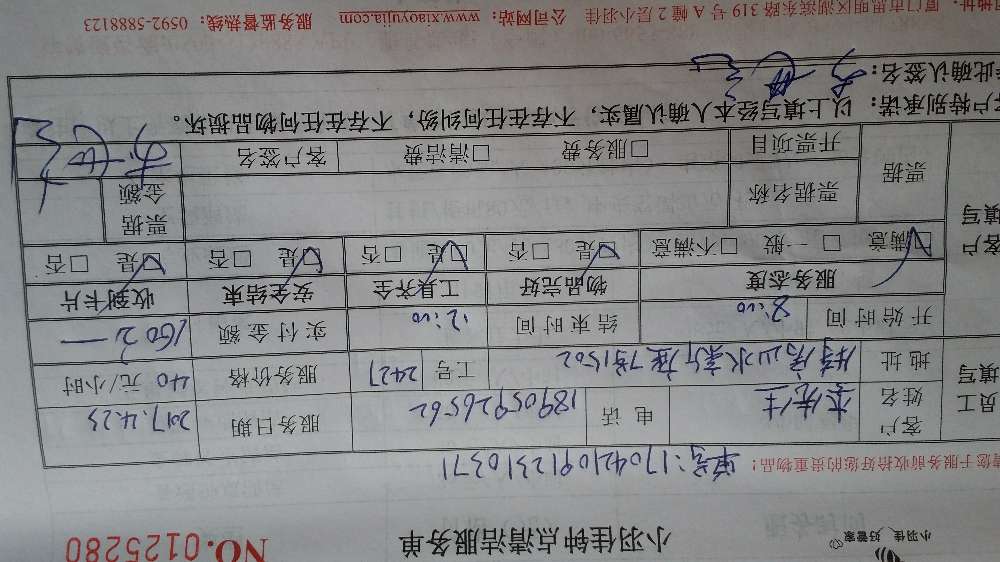 小羽佳 好管家
小羽佳钟点清洁服务单
NO.0125280
单号:1704210912310371
请您于服务前收拾好您的贵重物品!
员工填写
客户姓名 李先生 电话 18905926562 服务日期 2017.4.23
地址 工号 2427 服务价格 40 元/小时
开始时间 8:00 结束时间 12:00 实付金额 160元
客户填写
服务态度 物品完好 工具齐全 安全结束 收到卡片
☑满意 □一般 □不满意 ☑是 □否 ☑是 □否 ☑是 □否 ☑是 □否
票据 票据名称 票据金额
开票项目 □服务费 □清洁费 客户签名
客户特别承诺: 以上填写经本人确认属实,不存在任何纠纷,不存在任何物品损坏。
在此确认签名:
司地址:厦门市思明区湖滨东路 319 号 A 幢 2 层小羽佳 公司网站:www.xiaoyujia.com 服务监督热线:0592-5888123